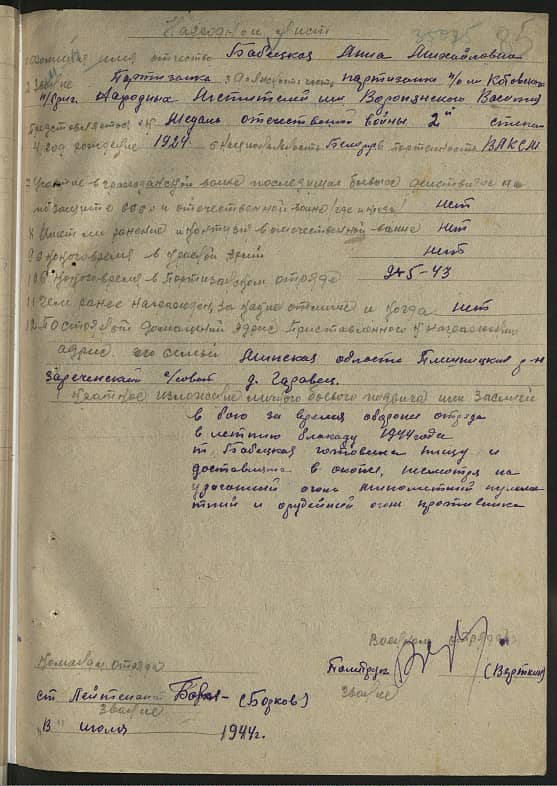 Наградной лист
35035
95
1 Фамилия имя отчество Бабецкая Анна Михайловна
2 Звание Партизанка 3 Должность часть партизанка п/о им Котовского
п/бриг. Народных Мстителей им Воронянского Василия
Представляется к Медаль отечественной войны 2й степени
4 год рождения 1924 5 национальность Беларус 6 партейность ВЛКСМ
7 Участие в гражданской войне последующих боевых действиях
по защите СССР и отечественной войне (где и когда) нет
8 Имеет ли ранение и контузия в отечественной войне нет
9 С какого время в красной армии нет
10 С какого время в партизанском отряде 5-43
11 Чем ранее награжден за какие отличие и когда нет
12 Постоянный домашний адрес представленного к награждению
адрис его семьи Минская область Плещицкий р-н
Зареченский с/совет д. Гаравец.
Краткое изложение личного боевого подвига или заслуги
в бою за время обороне отряда
в летнию блакаду 1944 года
т. Бабецкая готовила пищу и
доставляла в окопы, несмотря на
огонь минометный пулеме
тний и орудейний огонь противника
Командир отряда
ст Лейтенант (Борков)
звание
"В" июля 1944г.
Военком отряда
Политрук (Верткин)
звание